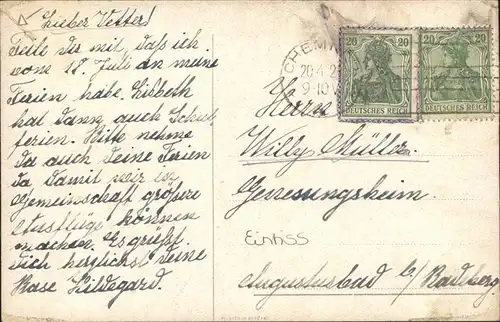 Lieber Vetter!
Teile Dir mit, daß ich
vom 18. Juli an meine
Ferien habe. Lisbeth
hat dann auch Schul
ferien. Bitte nehme
da auch Deine Ferien
da damit wir in
Gemeinschaft größere
Ausflüge können
machen. Es grüßt
Dich herzlichst Deine
Base Hildegard.
CHEMN
20.4.2
9-10V
20 20
20 20
DEUTSCHES REICH
DEUTSCHES REICH
Herrn
Willy Müller
Genesungsheim
Einriss
Augustusbad b/ Radeberg